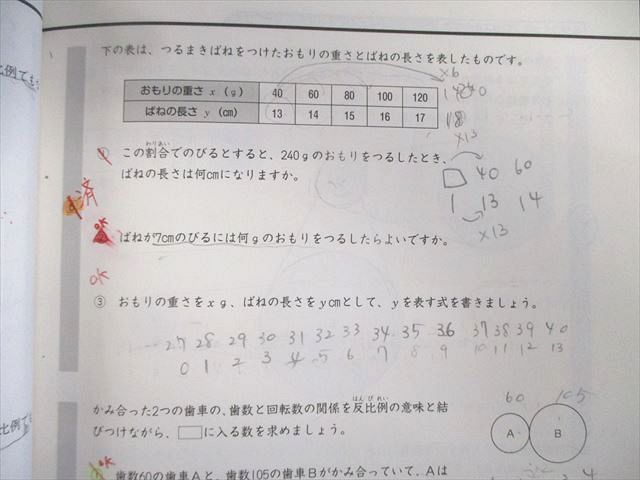 下の表は、つるまきばねをつけたおもりの重さとばねの長さを表したものです。
×6
おもりの重さ x (g) 40 60 80 100 120
ばねの長さ y (cm) 13 14 15 16 17
18
×13
① この割合でのびるとすると、240gのおもりをつるしたとき、
わりあい
ばねの長さは何cmになりますか。
□ 40 60
1 13 14
×13
済
ばねが7cmのびるには何gのおもりをつるしたらよいですか。
OK
③ おもりの重さをxg、ばねの長さをycmとして、yを表す式を書きましょう。
27 28 29 30 31 32 33 34 35 36 37 38 39 40
0 1 2 3 4 5 6 7 8 9 10 11 12 13
かみ合った2つの歯車の、歯数と回転数の関係を反比例の意味と結
はんぴれい
びつけながら、□に入る数を求めましょう。
60 105
A B
歯数60の歯車Aと、歯数105の歯車Bがかみ合っていて、Aは